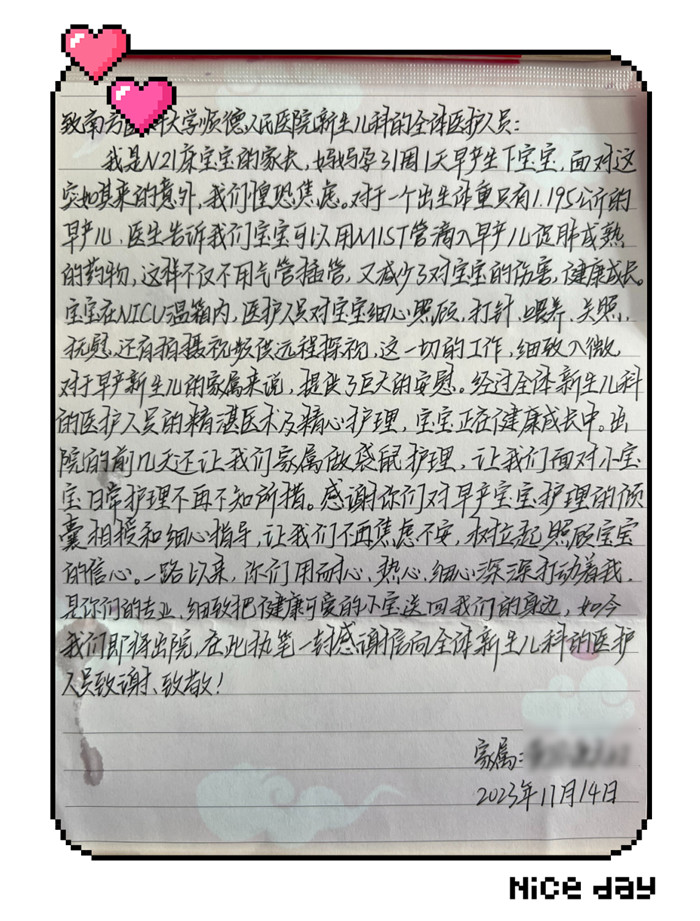 致南方医科大学顺德人民医院新生儿科的全体医护人员：
我是N21床宝宝的家长，妈妈孕31周1天早产生下宝宝，面对这
突如其来的意外，我们惶恐焦虑。对于一个出生体重只有1.195公斤的
早产儿，医生告诉我们宝宝可以用MIST管滴入早产儿促肺成熟
的药物，这样不仅不用气管插管，又减少了对宝宝的伤害，健康成长。
宝宝在NICU温箱内，医护人员对宝宝细心照顾，打针、喂养、关照、
抚慰，还有拍摄视频供远程探视，这一切的工作，细致入微
对于早产新生儿的家属来说，提供了巨大的安慰。经过全体新生儿科
的医护人员的精湛医术及精心护理，宝宝正在健康成长中。出
院的前几天还让我们家属做袋鼠护理，让我们面对小宝
宝日常护理不再不知所措。感谢你们对早产宝宝护理的倾
囊相授和细心指导，让我们不再焦虑不安，树立起照顾宝宝
的信心。一路以来，你们用耐心、热心、细心深深打动着我，
是你们的专业、细致把健康可爱的小宝送回我们的身边，如今
我们即将出院，在此执笔一封感谢信向全体新生儿科的医护
人员致谢、致敬！
家属：
2023年11月14日
Nice day